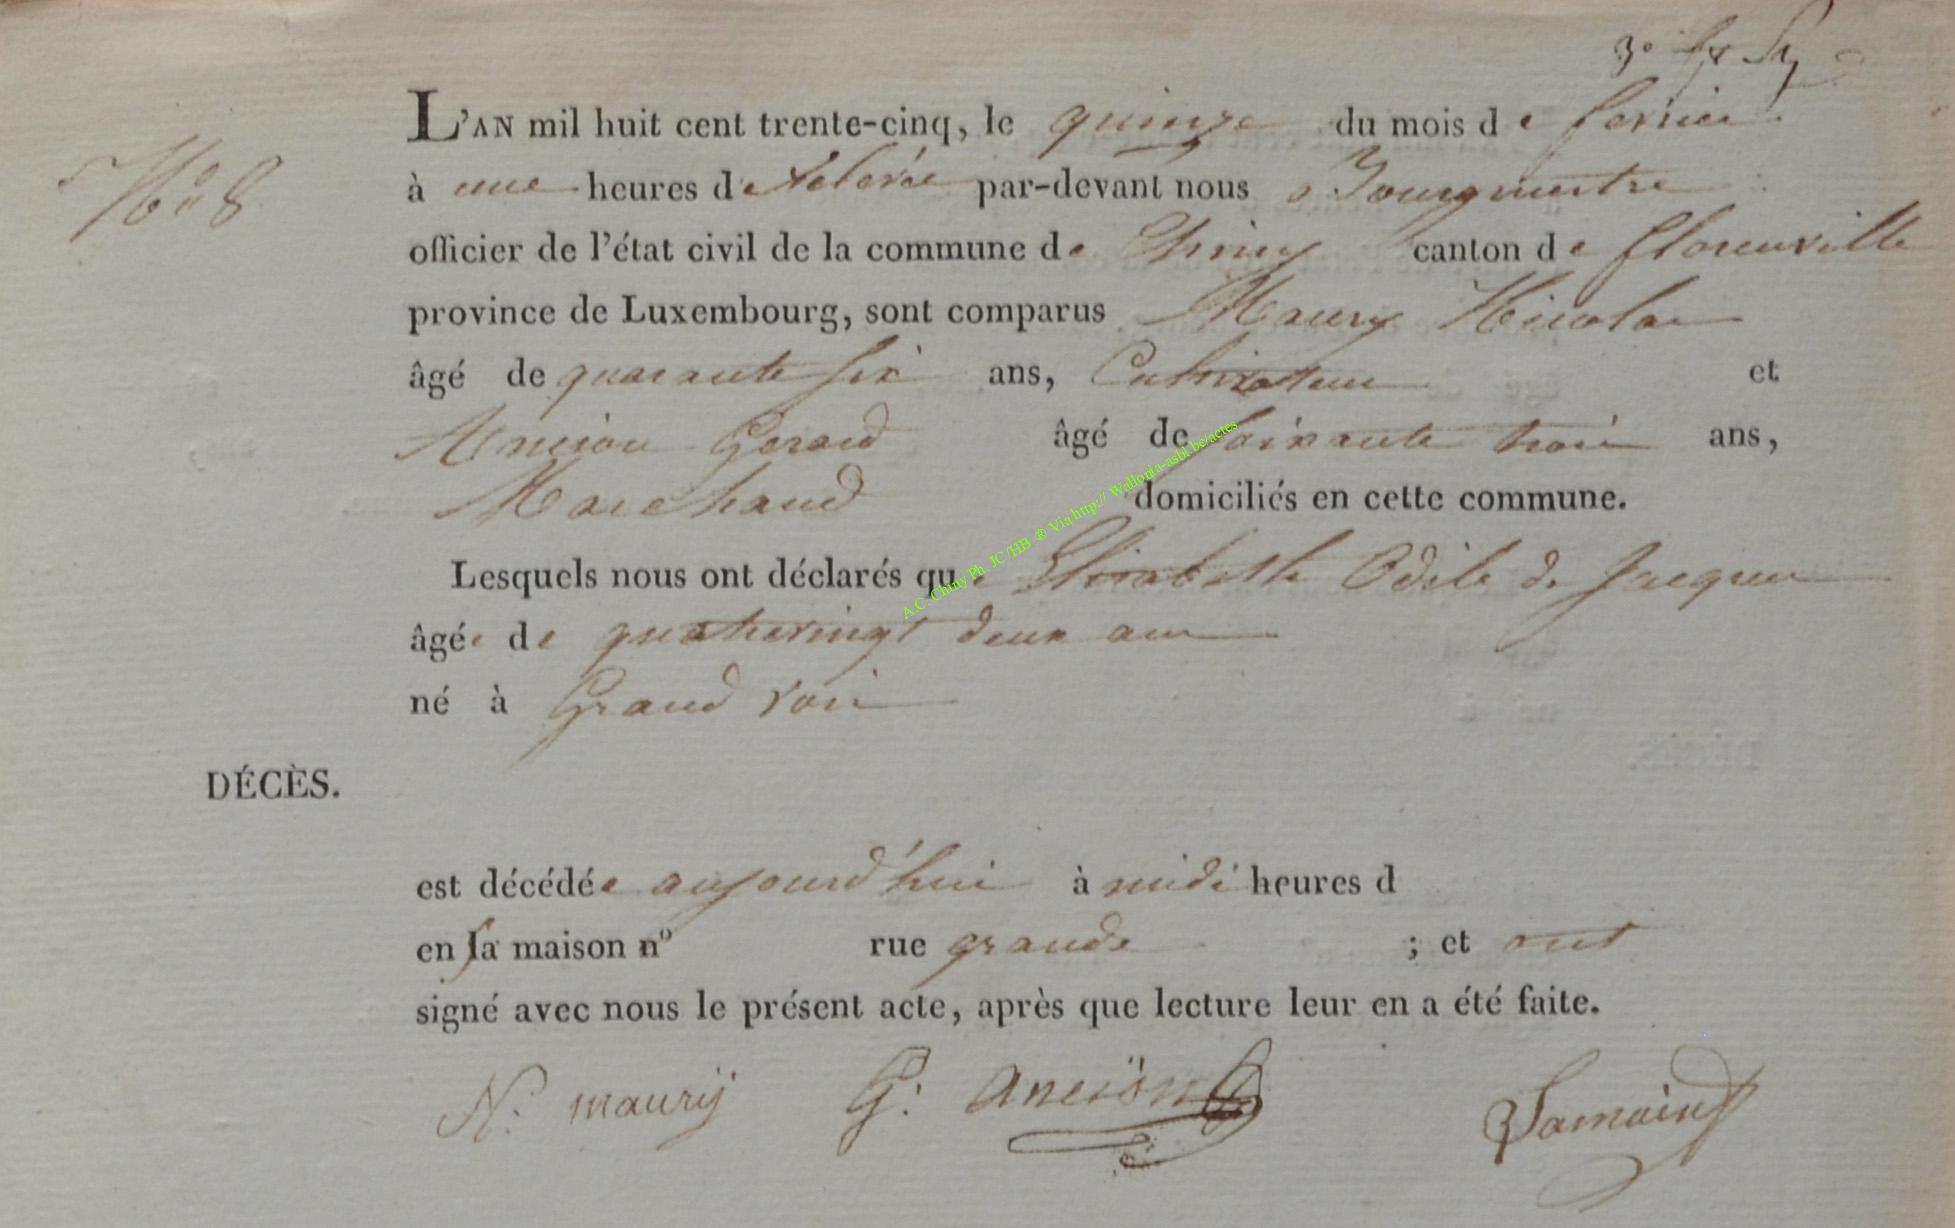 L'AN mil huit cent trente-cinq, le quinze du mois de fevrier
N° 8
à une heures de relevée par-devant nous Bourgmestre
officier de l'état civil de la commune de Chiny canton de florenville
province de Luxembourg, sont comparus Maury Nicolas
âgé de quarante six ans, Cultivateur et
Ancion Gerard âgé de soixante trois ans,
Marchand domiciliés en cette commune.
A.C. Chiny Ph. JC/HB ® Via http:// Wallonia-asbl.be/actes
Lesquels nous ont déclarés que Elisabeth Odile de Jacques
âgée de quatrevingt deux ans
né à Grand voir
DÉCÈS.
est décédée aujourd'hui à midi heures d
en sa maison n° rue grande ; et ont
signé avec nous le présent acte, après que lecture leur en a été faite.
N. maurÿ G. ancïon